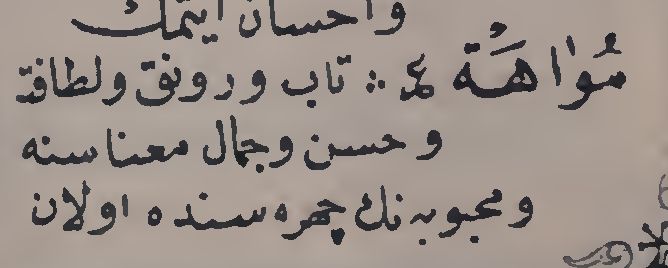 واحسان ايتمك
مُوَاهَة ع؞ تاب ورونق ولطافت
وحسن وجمال معناسنه
ومحبوبه نك چهره سنده اولان